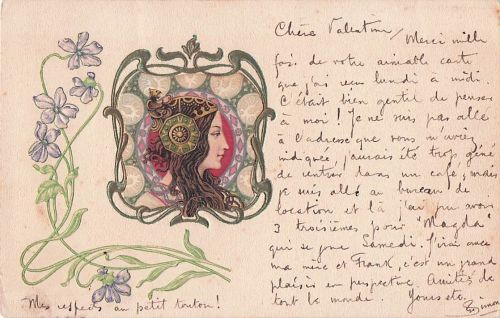 Chère Valentine, Merci mille
fois de votre aimable carte
que j'ai reçu lundi à midi.
C'était bien gentil de penser
à moi! Je ne suis pas allé
à l'adresse que vous m'aviez
indiquée, j'aurais été trop gêné
de rentrer dans un café, mais
je suis allé au bureau de
location et là j'ai pu avoir
3 troisièmes pour "Magda"
qui se joue Samedi. J'irai avec
ma mère et Frank, c'est un grand
plaisir en perspective. Amitiés de
tout le monde. Yours etc.
Simon
Mes respects au petit toutou!